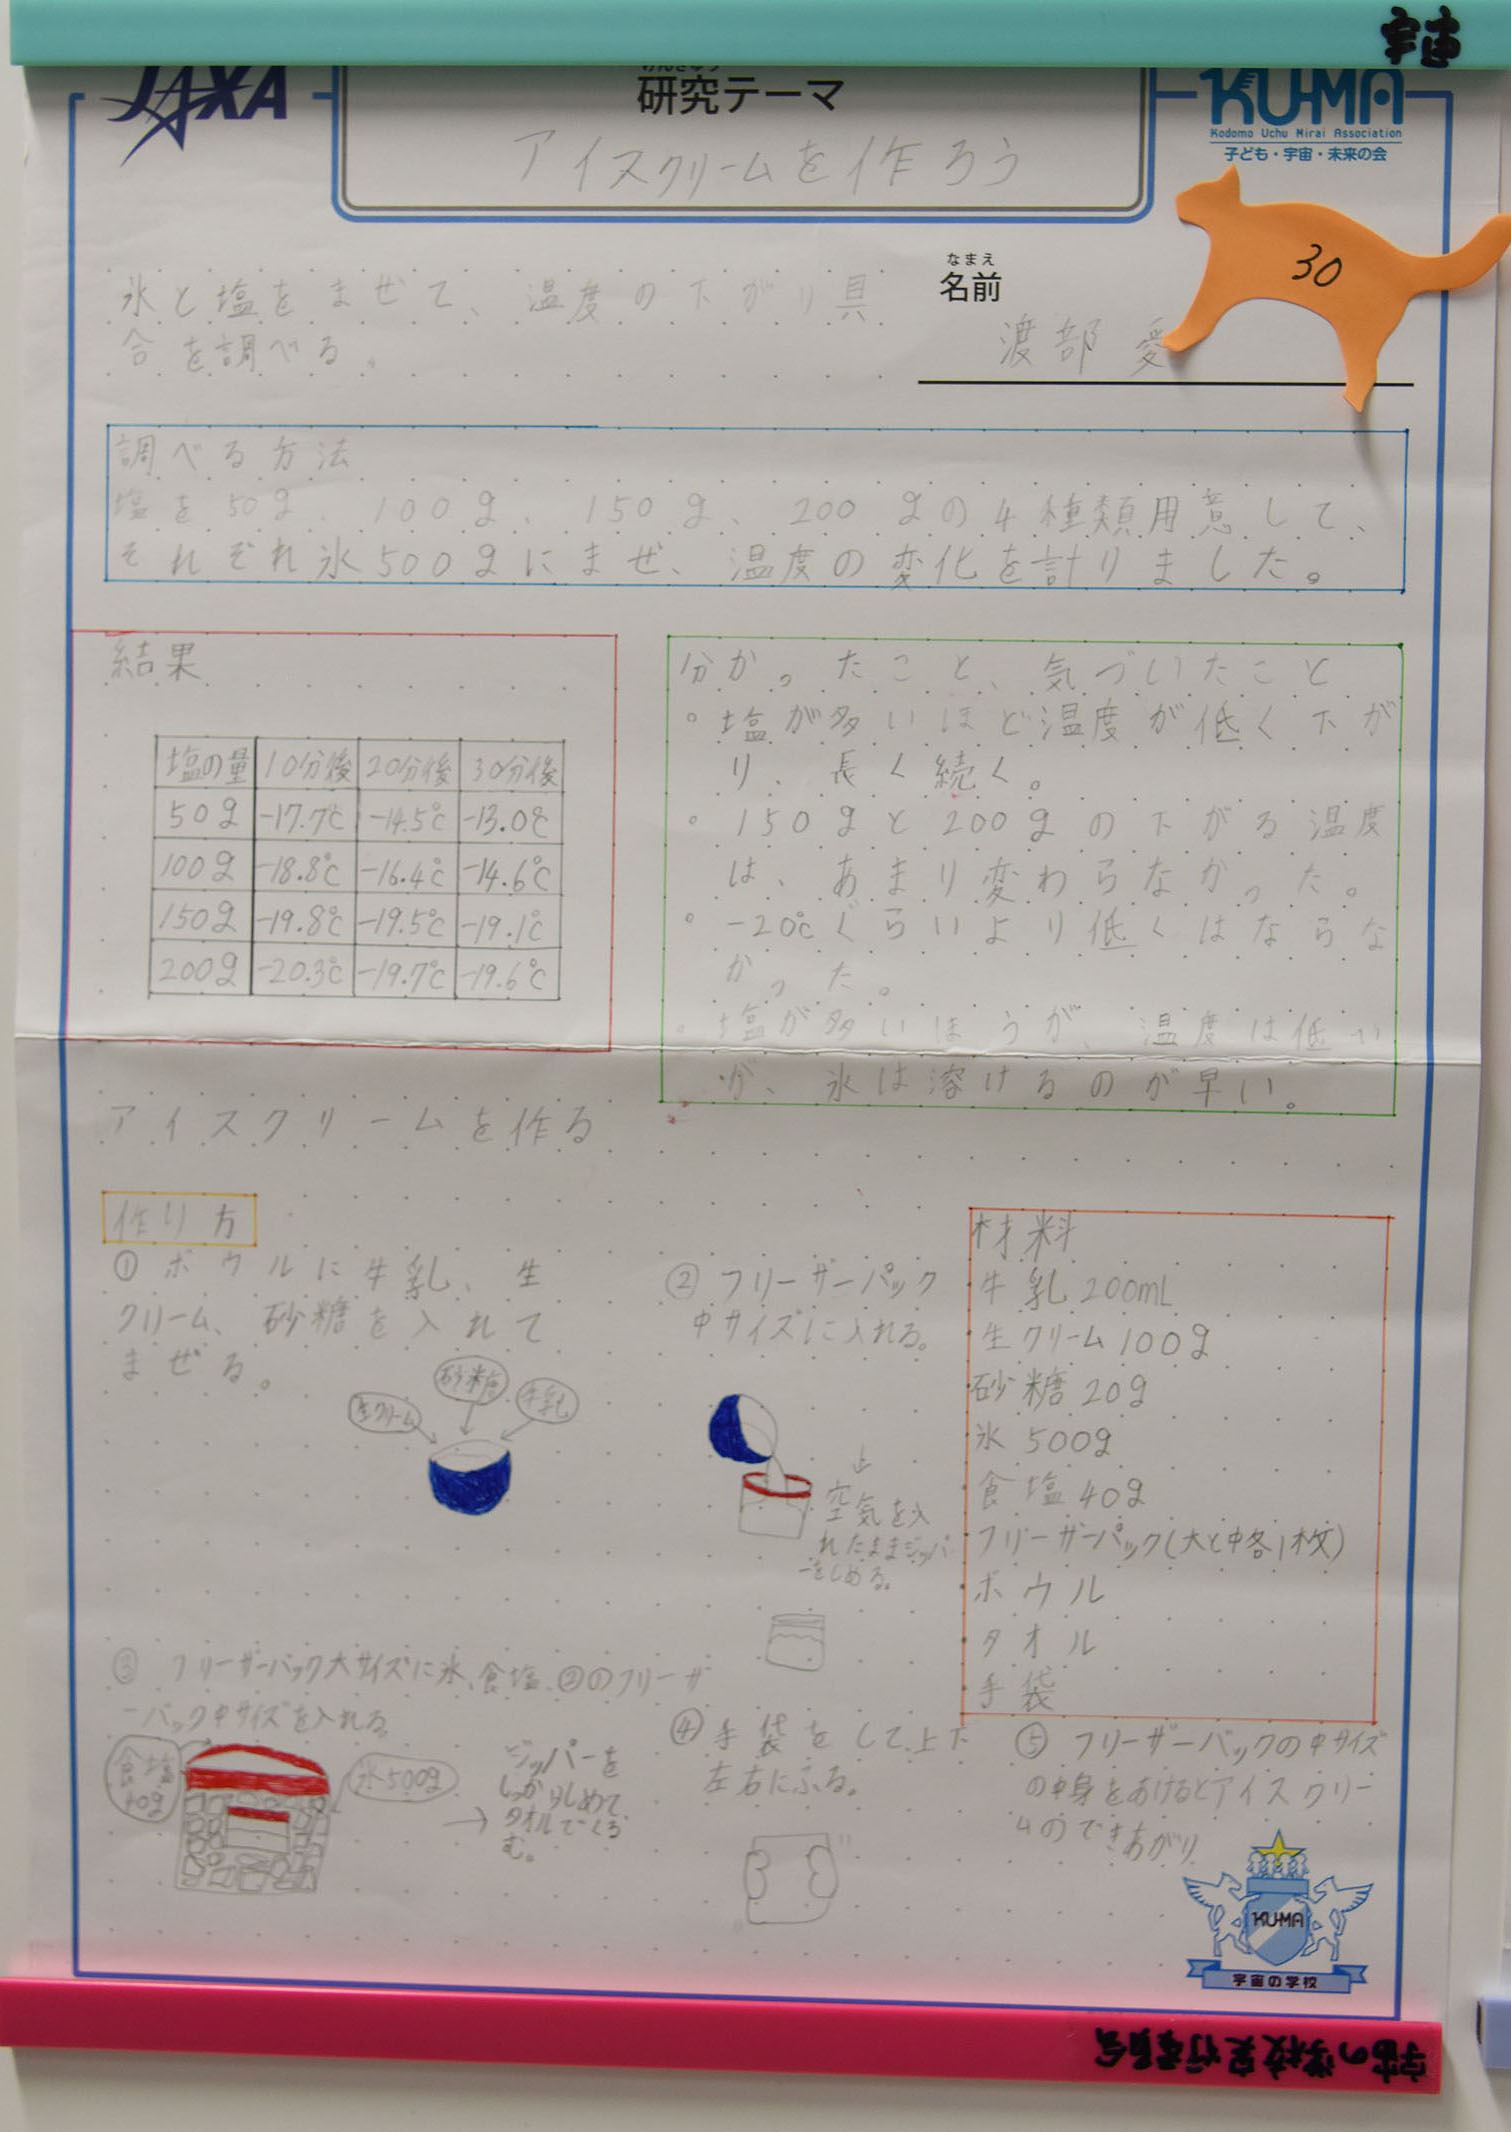 宇宙
JAXA
けんきゅう
研究テーマ
アイスクリームを作ろう
KU-MA
Kodomo Uchu Mirai Association
子ども・宇宙・未来の会
30
なまえ
名前
渡部 愛
氷と塩をまぜて、温度の下がり具
合を調べる。
調べる方法
塩を50g、100g、150g、200gの4種類用意して、
それぞれ氷500gにまぜ、温度の変化を計りました。
結果
塩の量 10分後 20分後 30分後
50g -17.7℃ -14.5℃ -13.0℃
100g -18.8℃ -16.4℃ -14.6℃
150g -19.8℃ -19.5℃ -19.1℃
200g -20.3℃ -19.7℃ -19.6℃
分かったこと、気づいたこと
。塩が多いほど温度が低く下が
り、長く続く。
。150gと200gの下がる温度
は、あまり変わらなかった。
。-20℃ぐらいより低くはならな
かった。
。塩が多いほうが、温度は低い
が、氷は溶けるのが早い。
アイスクリームを作る
作り方
①ボウルに牛乳、生
クリーム、砂糖を入れて
まぜる。
生クリーム
砂糖
牛乳
②フリーザーパック
中サイズに入れる。
↓
空気を入
れたままジッパ
ーをしめる。
材料
牛乳200mL
生クリーム100g
砂糖20g
氷500g
食塩40g
フリーザーパック(大と中各1枚)
ボウル
タオル
手袋
③フリーザーバック大サイズに氷、食塩、②のフリーザ
ーバック中サイズを入れる。
食塩
40g
氷500g
→
ジッパーを
しっかりしめて、
タオルでくる
む。
④手袋をして上下
左右にふる。
⑤フリーザーバックの中サイズ
の中身をあけるとアイスクリー
ムのできあがり
KU-MA
宇宙の学校
宇宙の学校実行委員会